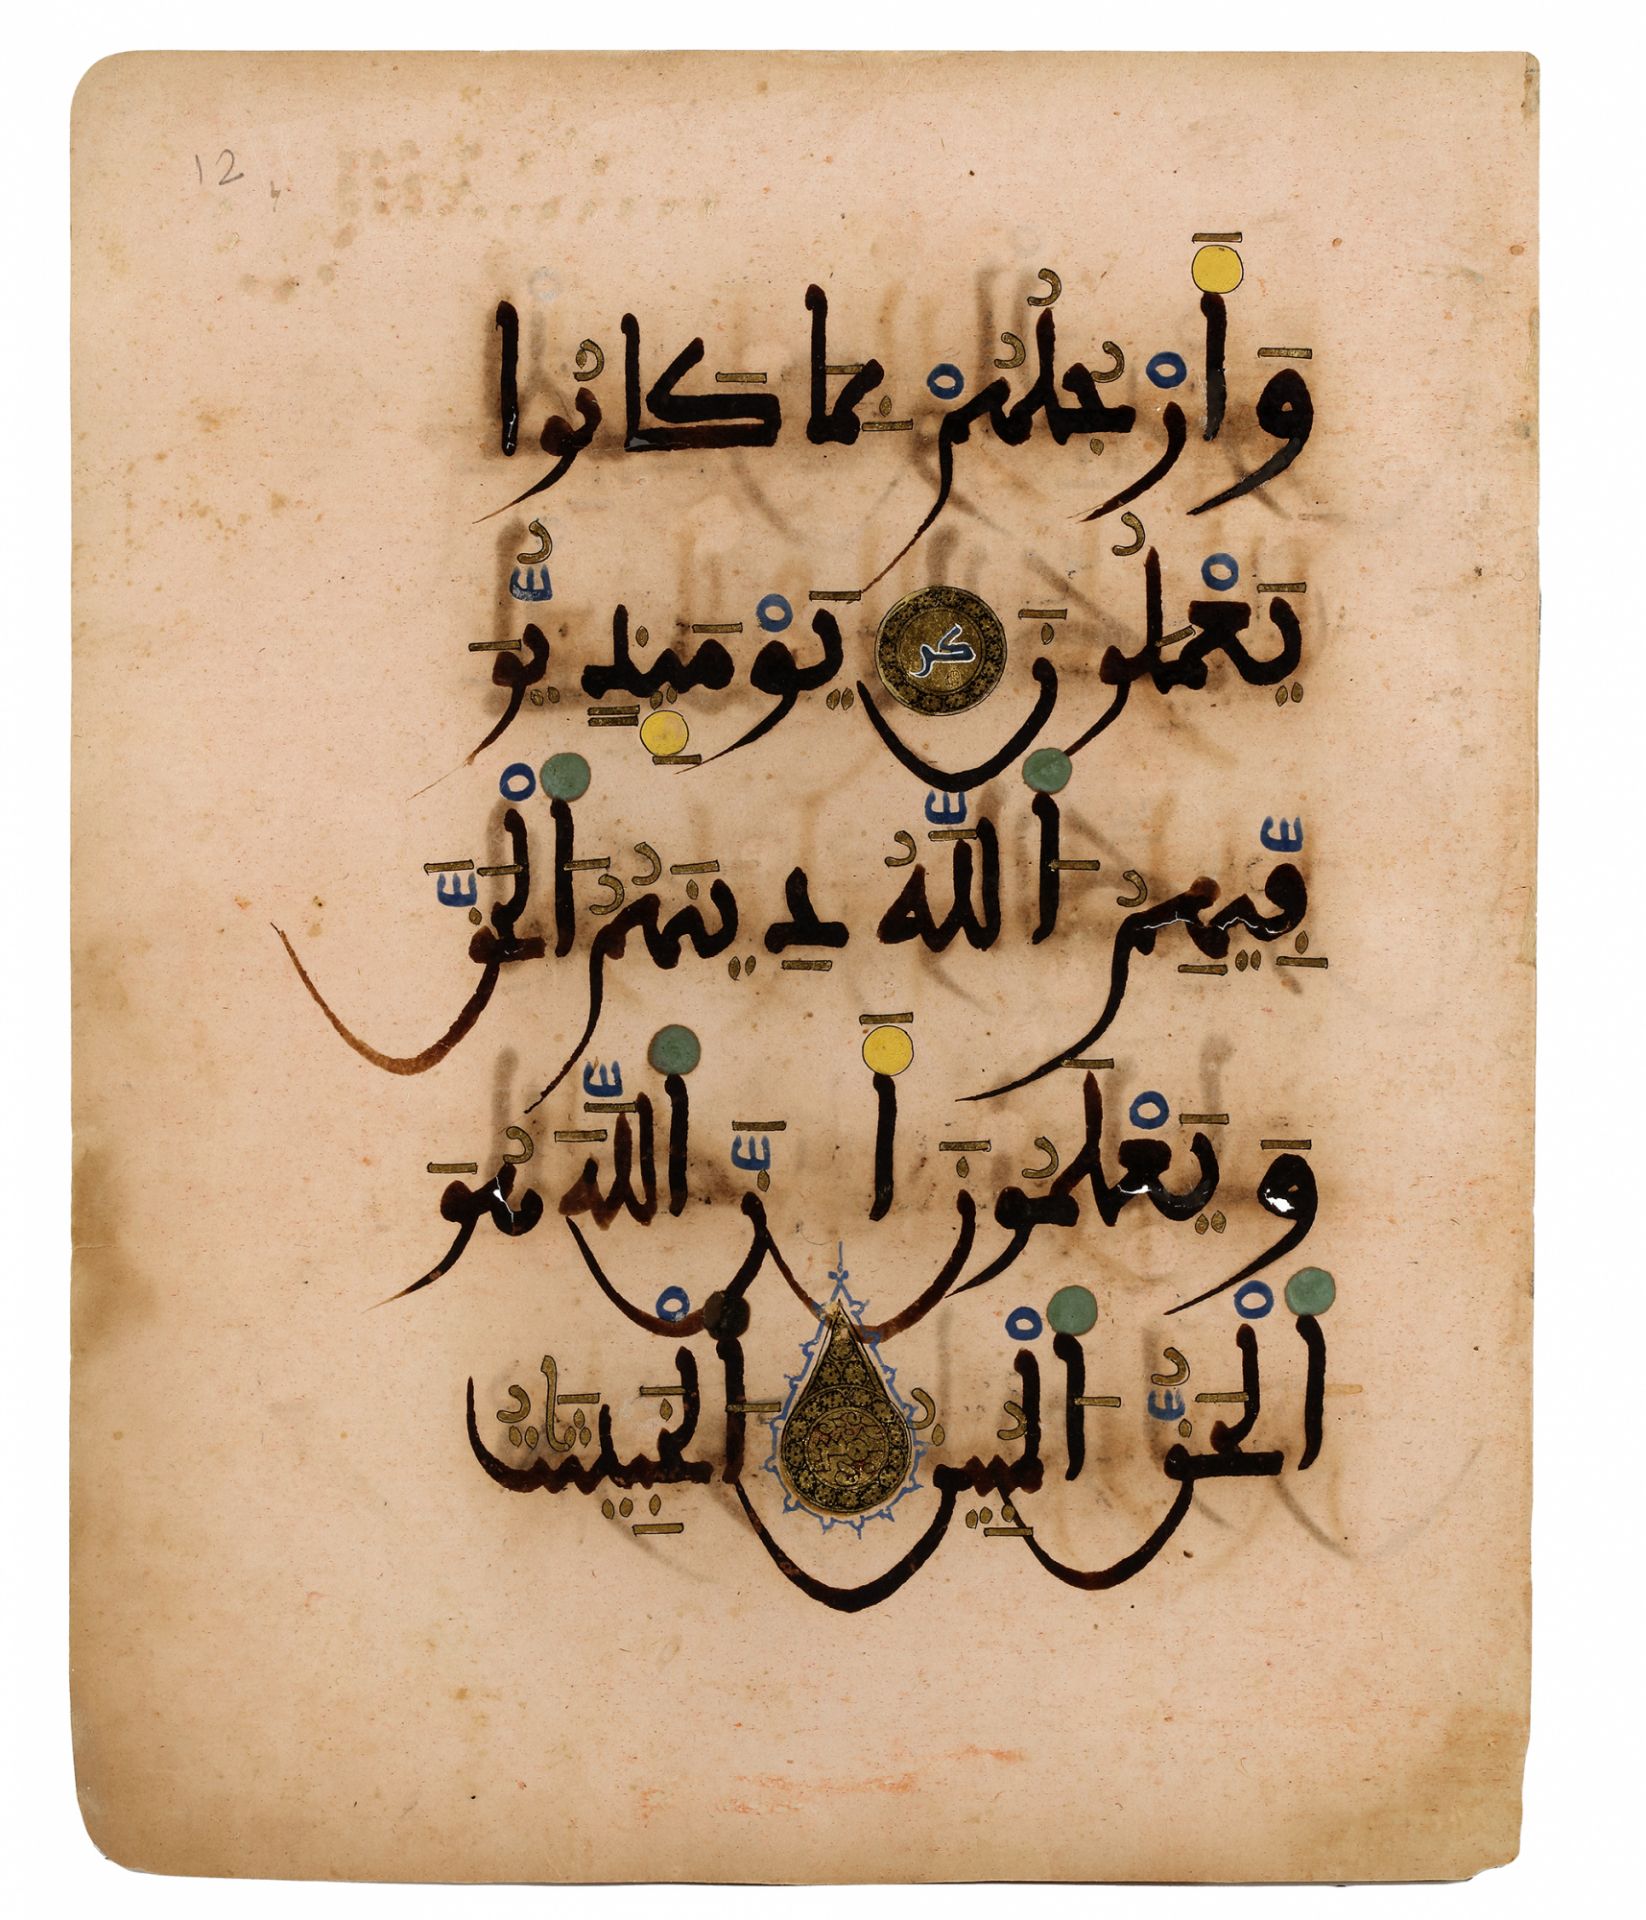 12
وَأَرْجُلُهُمْ بِمَا كَانُوا
يَعْمَلُونَ كد يَوْمَئِذٍ يُّوَ
فِّيهِمُ ٱللَّهُ دِينَهُمُ ٱلْحَقَّ
وَيَعْلَمُونَ أَنَّ ٱللَّهَ هُوَ
ٱلْحَقُّ ٱلْمُبِينُ ٱلْخَبِيثَاتُ